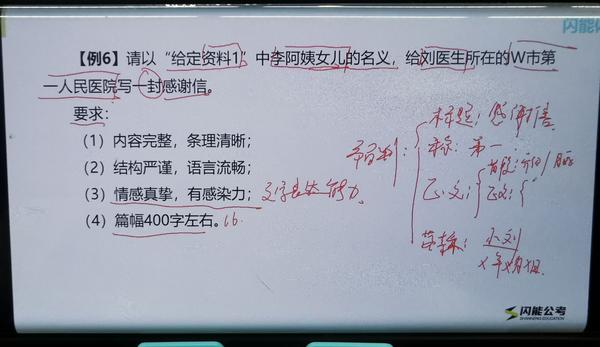 闪能
【例6】请以“给定资料1”中李阿姨女儿的名义，给刘医生所在的W市第
一人民医院写一封感谢信。
要求：
（1）内容完整，条理清晰；
（2）结构严谨，语言流畅；
（3）情感真挚，有感染力；文字表达能力
（4）篇幅400字左右。
标题：感谢信
称：第一
正文：
首段：
正文：
落款：小刘
x年x月x日
闪能公考
SHANNENG EDUCATION